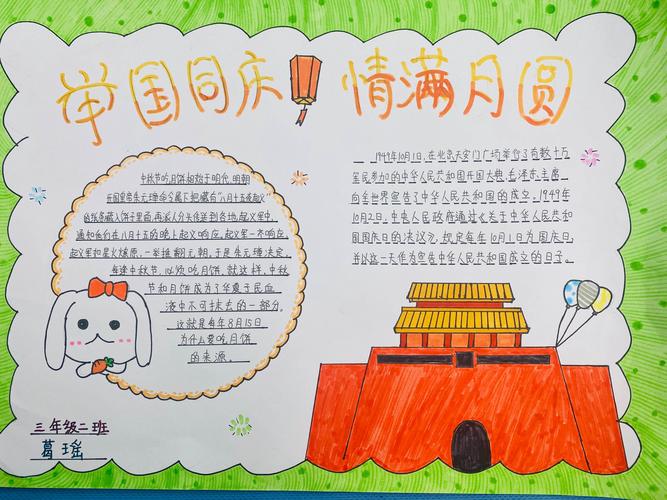 举国同庆 情满月圆
中秋节吃月饼相传于明代,明朝
开国皇帝朱元璋命令属下把藏有"八月十五夜起义"
的纸条藏入饼子里面,再派人分头传送到各地起义军中,
通知他们在八月十五的晚上起义响应。起义军一齐响应,
起义军如星火燎原,一举推翻元朝。于是朱元璋决定,
每逢中秋节,以烦吃月饼。就这样,中秋
节和月饼成为了华夏子民血
液中不可抹去的一部分。
这就是每年8月15日
为什么要吃月饼
的来源。
三年级二班
葛瑶
1949年10月1日,在北京天安门广场举行了有数十万
军民参加的中华人民共和国开国大典。毛泽东主席
向全世界宣告了中华人民共和国的成立。1949年
10月2日,中央人民政府通过《关于中华人民共和
国国庆日的决议》,规定每年10月1日为国庆日,
并以这一天作为宣告中华人民共和国成立的日子。